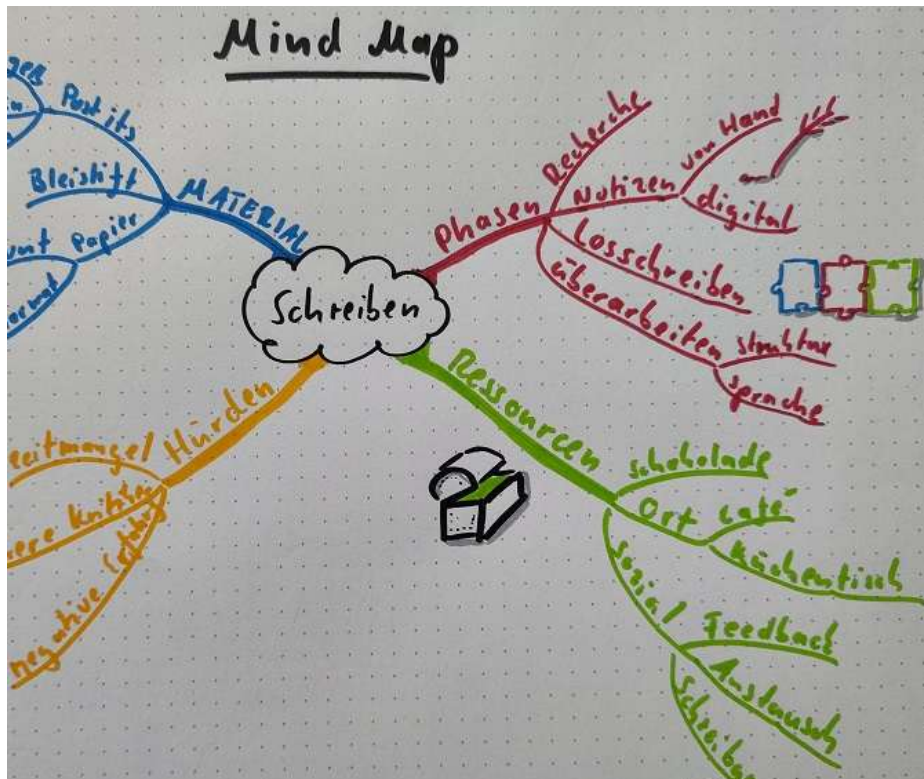 Mind Map
Schreiben
MATERIAL
Postits
Bleistift
Papier
Phasen
Recherche
Notizen
von Hand
digital
Losschreiben
überarbeiten
Struktur
Sprache
Ressourcen
Schokolade
Ort
Café
Küchentisch
Sozial
Feedback
Austausch
Schreiben
Hürden
eitmangel
negative